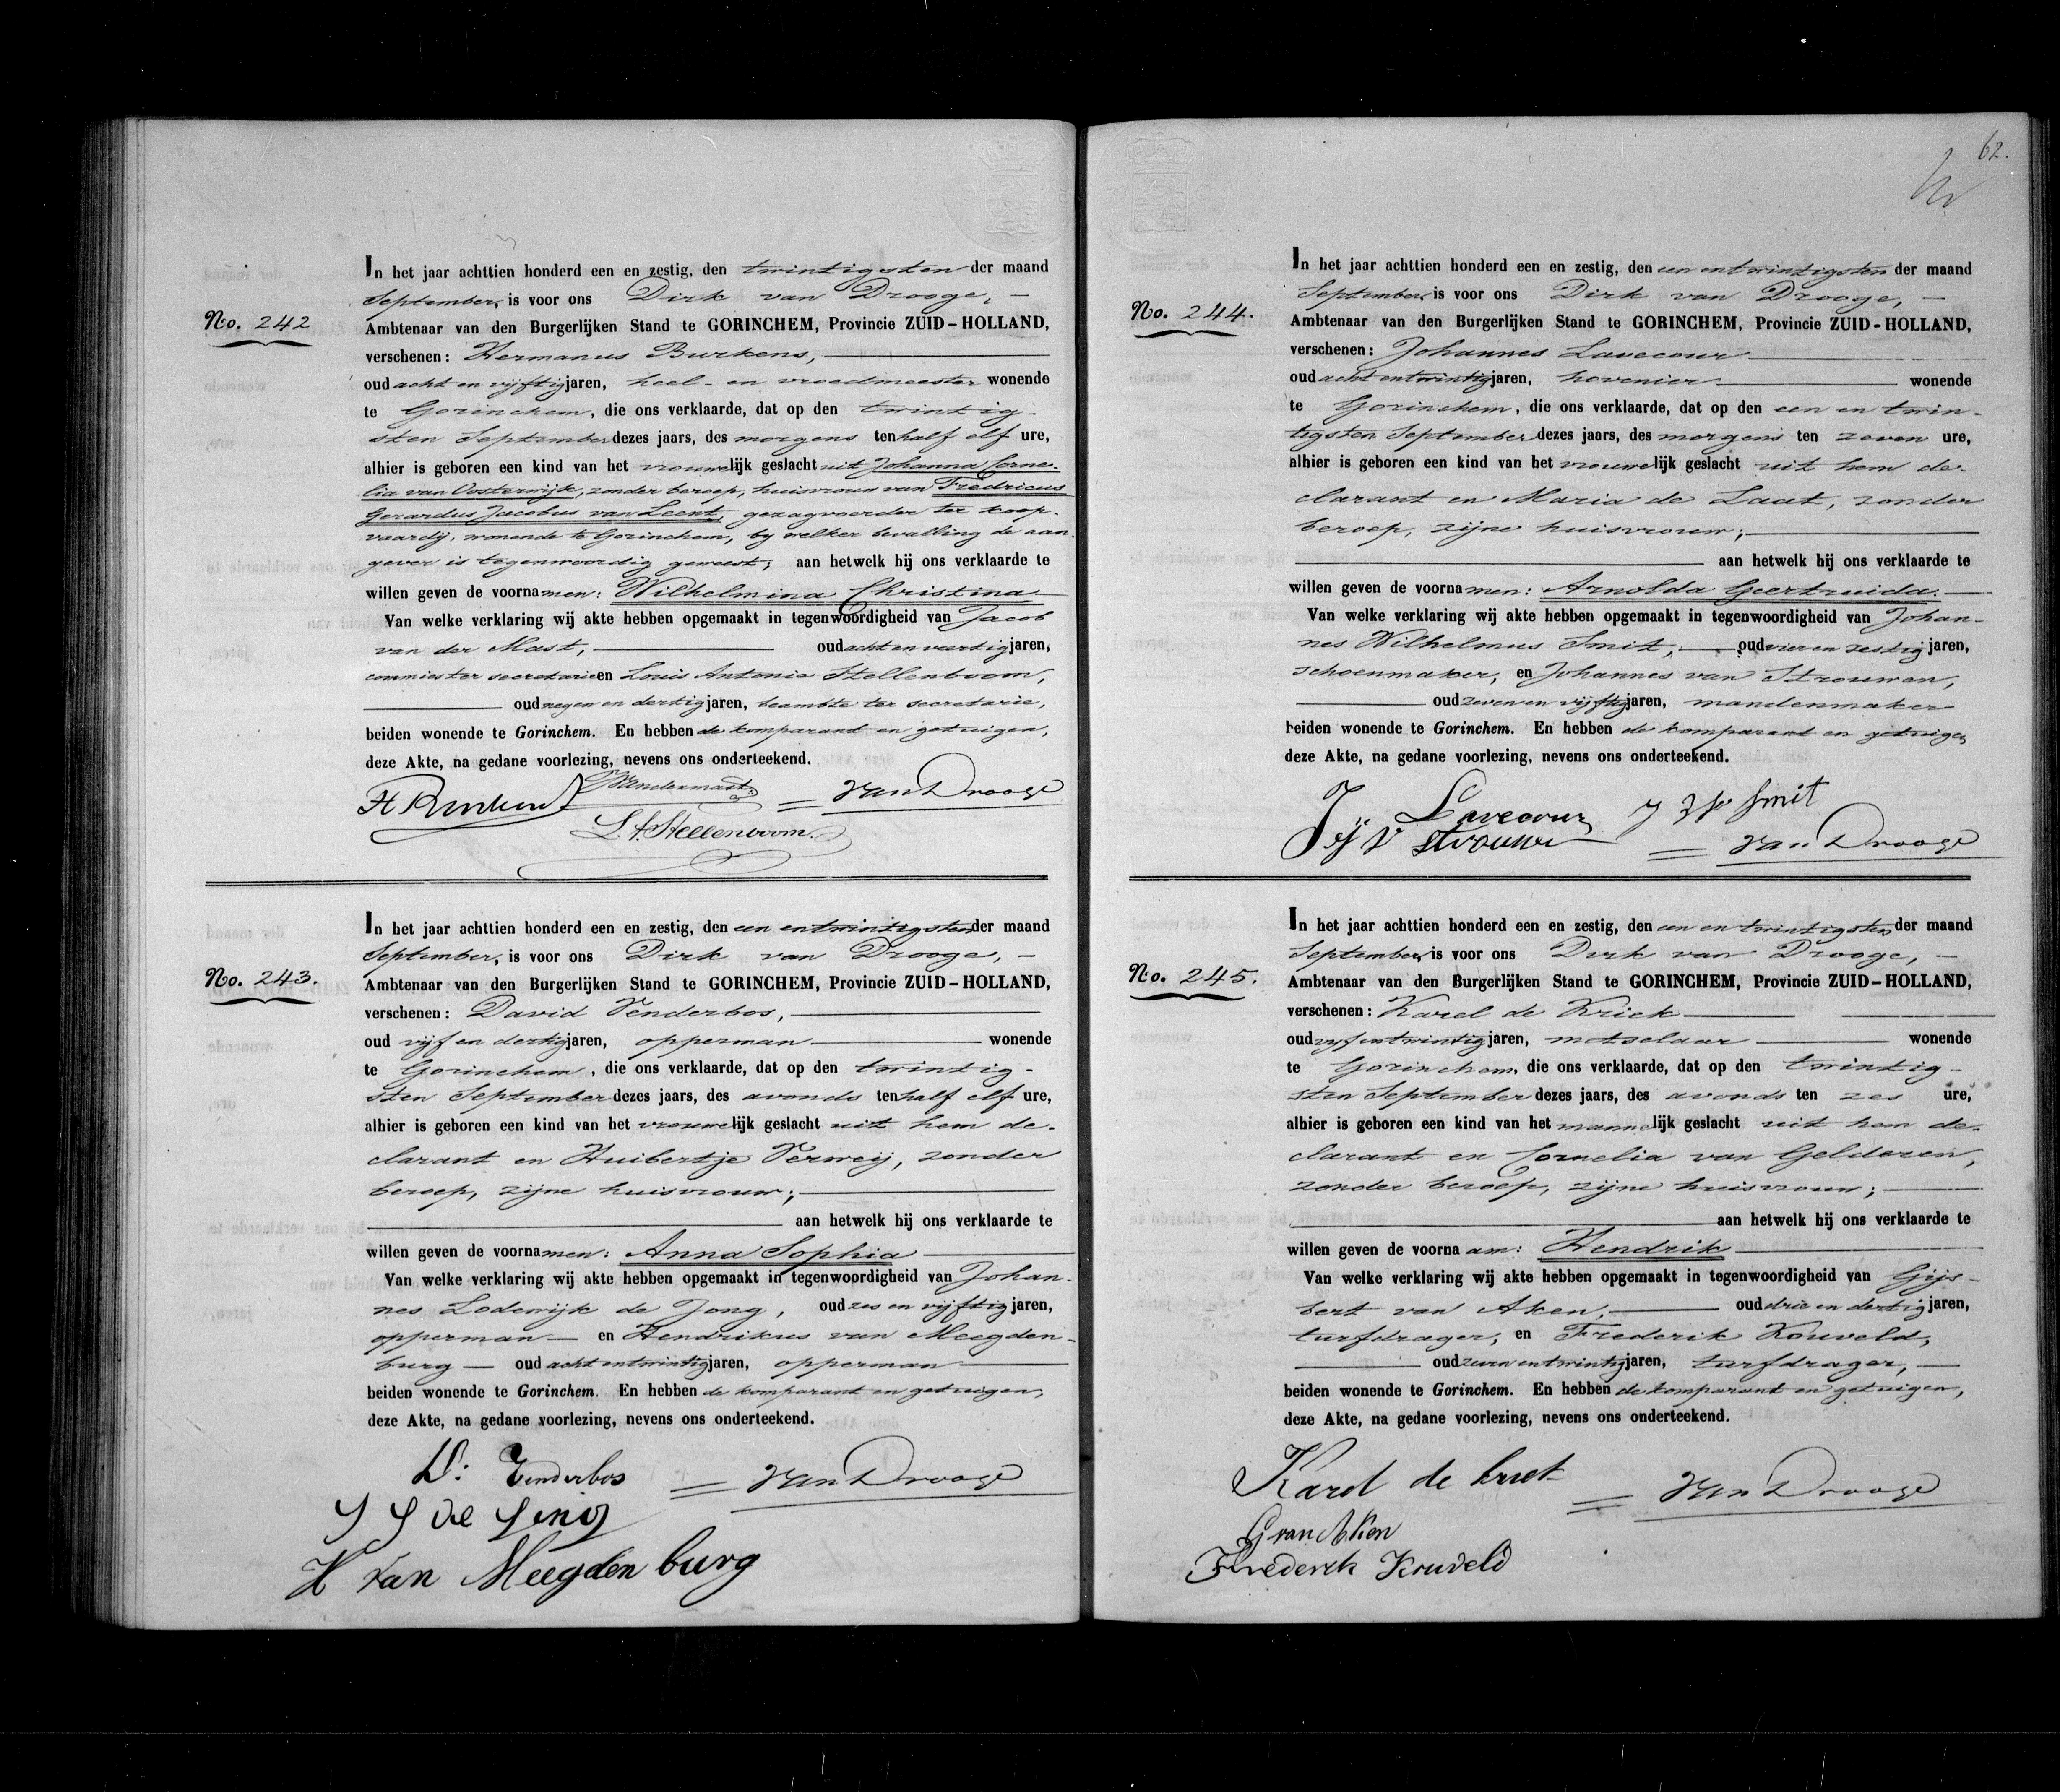 No. 242
In het jaar achttien honderd een en zestig, den twintigsten der maand
September, is voor ons Dirk van Drooge,
Ambtenaar van den Burgerlijken Stand te GORINCHEM, Provincie ZUID-HOLLAND,
verschenen: Hermanus Burkens,
oud acht en vijftig jaren, heel- en vroedmeester wonende
te Gorinchem, die ons verklaarde, dat op den twintig-
sten September dezes jaars, des morgens ten half elf ure,
alhier is geboren een kind van het vrouwelijk geslacht uit Johanna Corne-
lia van Oosterwijk, zonder beroep, huisvrouw van Fredricus
Gerardus Jacobus van Leent, gezagvoerder ter koop-
vaardij, wonende te Gorinchem, by welker bevalling de aan-
gever is tegenwoordig geweest; aan hetwelk hij ons verklaarde te
willen geven de voornamen: Wilhelmina Christina
Van welke verklaring wij akte hebben opgemaakt in tegenwoordigheid van Jacob
van der Mast, oud acht en veertig jaren,
commies ter secretarie en Louis Antonie Stellenboom,
oud negen en dertig jaren, beambte ter secretarie,
beiden wonende te Gorinchem. En hebben de komparant en getuigen,
deze Akte, na gedane voorlezing, nevens ons onderteekend.
H Burkens JVandermast van Drooge
L. A. Stellenboom.
No. 243.
In het jaar achttien honderd een en zestig, den een en twintigsten der maand
September, is voor ons Dirk van Drooge,
Ambtenaar van den Burgerlijken Stand te GORINCHEM, Provincie ZUID-HOLLAND,
verschenen: David Venderbos,
oud vijf en dertig jaren, opperman wonende
te Gorinchem, die ons verklaarde, dat op den twintig-
sten September dezes jaars, des avonds ten half elf ure,
alhier is geboren een kind van het vrouwelijk geslacht uit hem de-
clarant en Huibertje Verweij, zonder
beroep, zijne huisvrouw;
aan hetwelk hij ons verklaarde te
willen geven de voornamen: Anna Sophia
Van welke verklaring wij akte hebben opgemaakt in tegenwoordigheid van Johan-
nes Lodewijk de Jong, oud zes en vijftig jaren,
opperman en Hendrikus van Meegden-
burg oud acht en twintig jaren, opperman
beiden wonende te Gorinchem. En hebben de komparant en getuigen,
deze Akte, na gedane voorlezing, nevens ons onderteekend.
D: Venderbos van Drooge
de Jong
H van Meegdenburg
62.
No. 244.
In het jaar achttien honderd een en zestig, den een en twintigsten der maand
September, is voor ons Dirk van Drooge,
Ambtenaar van den Burgerlijken Stand te GORINCHEM, Provincie ZUID-HOLLAND,
verschenen: Johannes Lavecour
oud acht en twintig jaren, hovenier wonende
te Gorinchem, die ons verklaarde, dat op den een en twin-
tigsten September dezes jaars, des morgens ten zeven ure,
alhier is geboren een kind van het vrouwelijk geslacht uit hem de-
clarant en Maria de Laat, zonder
beroep, zijne huisvrouw;
aan hetwelk hij ons verklaarde te
willen geven de voornamen: Arnolda Geertruida.
Van welke verklaring wij akte hebben opgemaakt in tegenwoordigheid van Johan-
nes Wilhelmus Smit, oud vier en zestig jaren,
schoenmaker, en Johannes van Strouwen,
oud zeven en vijftig jaren, mandenmaker
beiden wonende te Gorinchem. En hebben de komparant en getuigen
deze Akte, na gedane voorlezing, nevens ons onderteekend.
J Lavecour Smit
van Drooge
No. 245.
In het jaar achttien honderd een en zestig, den een en twintigsten der maand
September, is voor ons Dirk van Drooge,
Ambtenaar van den Burgerlijken Stand te GORINCHEM, Provincie ZUID-HOLLAND,
verschenen: Karel de Kriek
oud vyf en twintig jaren, metselaar wonende
te Gorinchem, die ons verklaarde, dat op den twintig-
sten September dezes jaars, des avonds ten zes ure,
alhier is geboren een kind van het mannelijk geslacht uit hem de-
clarant en Cornelia van Gelderen,
zonder beroep, zijne huisvrouw;
aan hetwelk hij ons verklaarde te
willen geven de voornaam: Hendrik
Van welke verklaring wij akte hebben opgemaakt in tegenwoordigheid van Gijs-
bert van Aken, oud drie en dertig jaren,
turfdrager, en Frederik Kouveld,
oud zeven en twintig jaren, turfdrager,
beiden wonende te Gorinchem. En hebben de komparant en getuigen,
deze Akte, na gedane voorlezing, nevens ons onderteekend.
Karel de van Drooge
G van Aken
Frederik